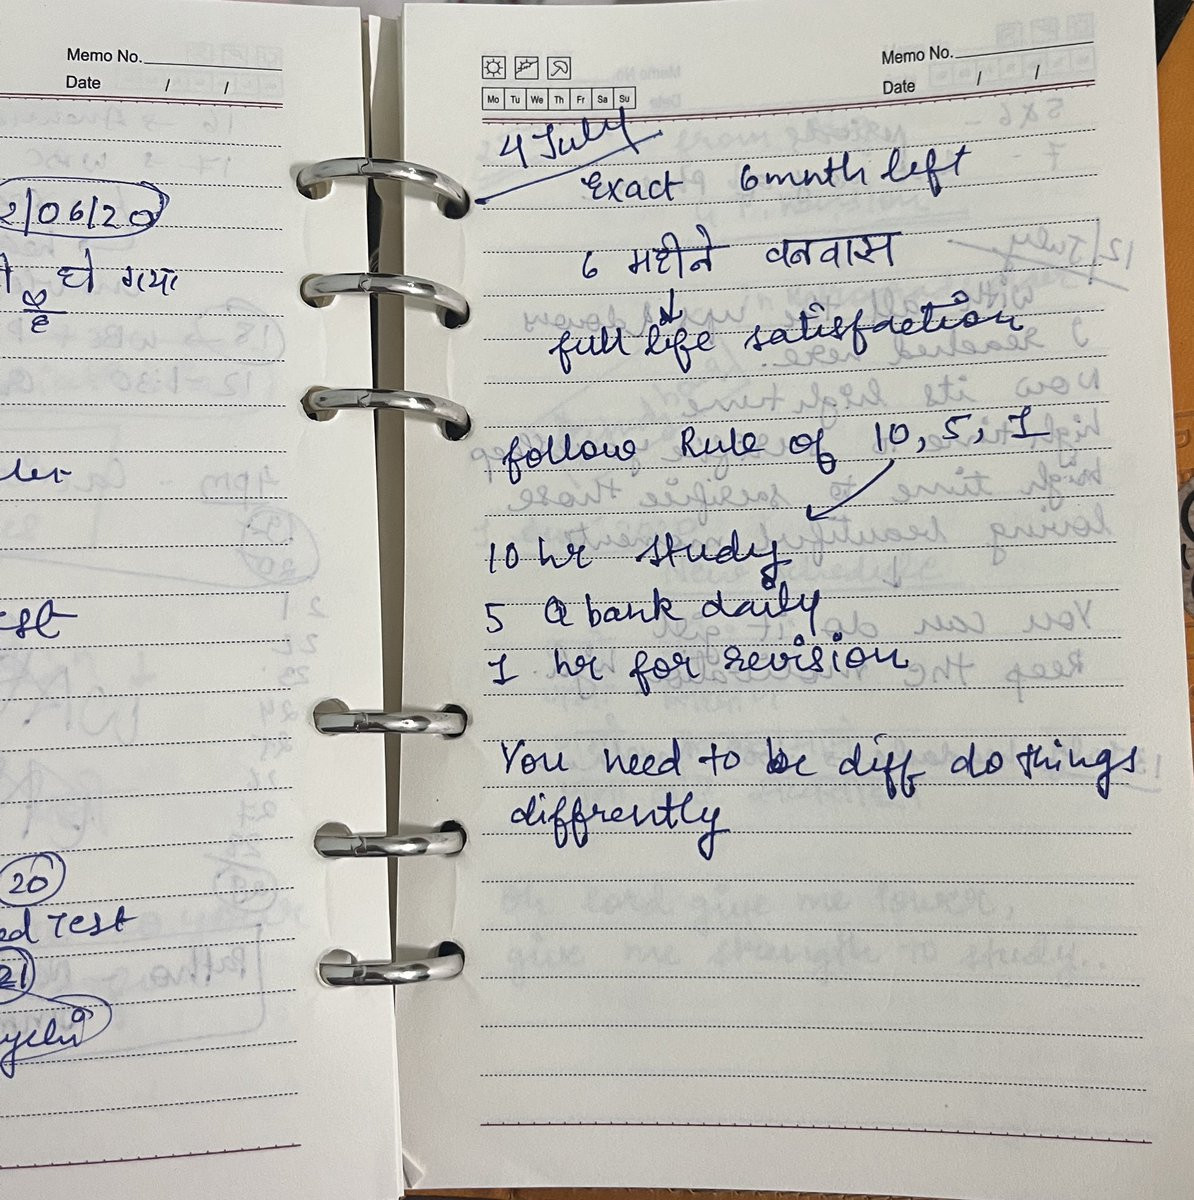 Memo No.
Date / /
2/06/20
धो गया
20
Test
21
Memo No.
Date / /
Mo Tu We Th Fr Sa Su
4 July
Exact 6 mnth left
6 महीने वनवास
full life satisfaction
follow Rule of 10, 5, 1
10 hr study
5 Q bank daily
1 hr for revision
You need to be diff do things
diffrently